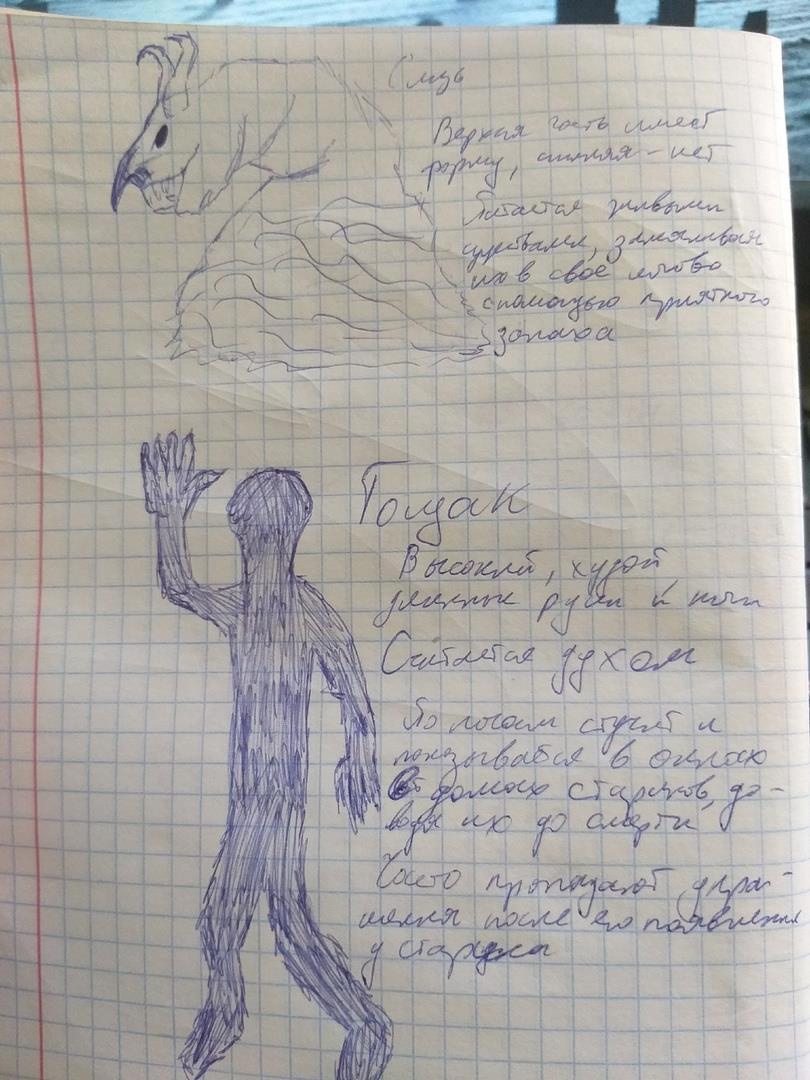 Слизь
Верхняя часть имеет
форму, нижняя - нет
Питается живыми
существами, заманивая
их в своё логово
с помощью приятного
запаха
Гощак
Высокий, худой,
длинные руки и ноги
Считается духом
По ночам стучит и
показывается в окнах
в домах стариков, до-
водя их до смерти
Часто пропадают украше-
ния после его появления
у старика